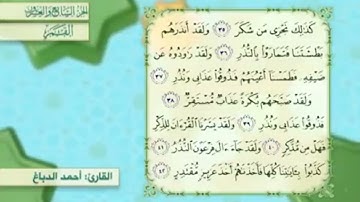 الجزء السابع والعشرون
القمر
كَذَٰلِكَ نَجْزِى مَن شَكَرَ ٣٥ وَلَقَدْ أَنذَرَهُم
بَطْشَتَنَا فَتَمَارَوْا۟ بِٱلنُّذُرِ ٣٦ وَلَقَدْ رَٰوَدُوهُ عَن
ضَيْفِهِۦ فَطَمَسْنَآ أَعْيُنَهُمْ فَذُوقُوا۟ عَذَابِى وَنُذُرِ ٣٧
وَلَقَدْ صَبَّحَهُم بُكْرَةً عَذَابٌ مُّسْتَقِرٌّ ٣٨
فَذُوقُوا۟ عَذَابِى وَنُذُرِ ٣٩ وَلَقَدْ يَسَّرْنَا ٱلْقُرْءَانَ لِلذِّكْرِ
فَهَلْ مِن مُّدَّكِرٍ ٤٠ وَلَقَدْ جَآءَ ءَالَ فِرْعَوْنَ ٱلنُّذُرُ ٤١
كَذَّبُوا۟ بِـَٔايَٰتِنَا كُلِّهَا فَأَخَذْنَٰهُمْ أَخْذَ عَزِيزٍ مُّقْتَدِرٍ ٤٢
القارئ: أحمد الدباغ